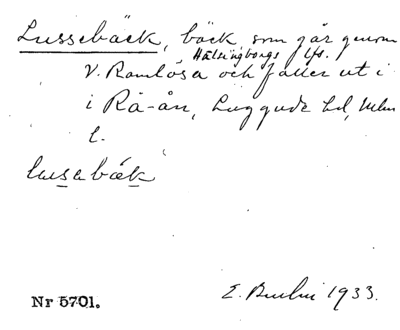 Lussebäck, bäck som går genom
Hälsingborgs lfs.
V. Ramlösa och faller ut i
i Rå-ån, Luggude hd, Mlm
L.
lusabäk
Nr 5701. E. 1933.